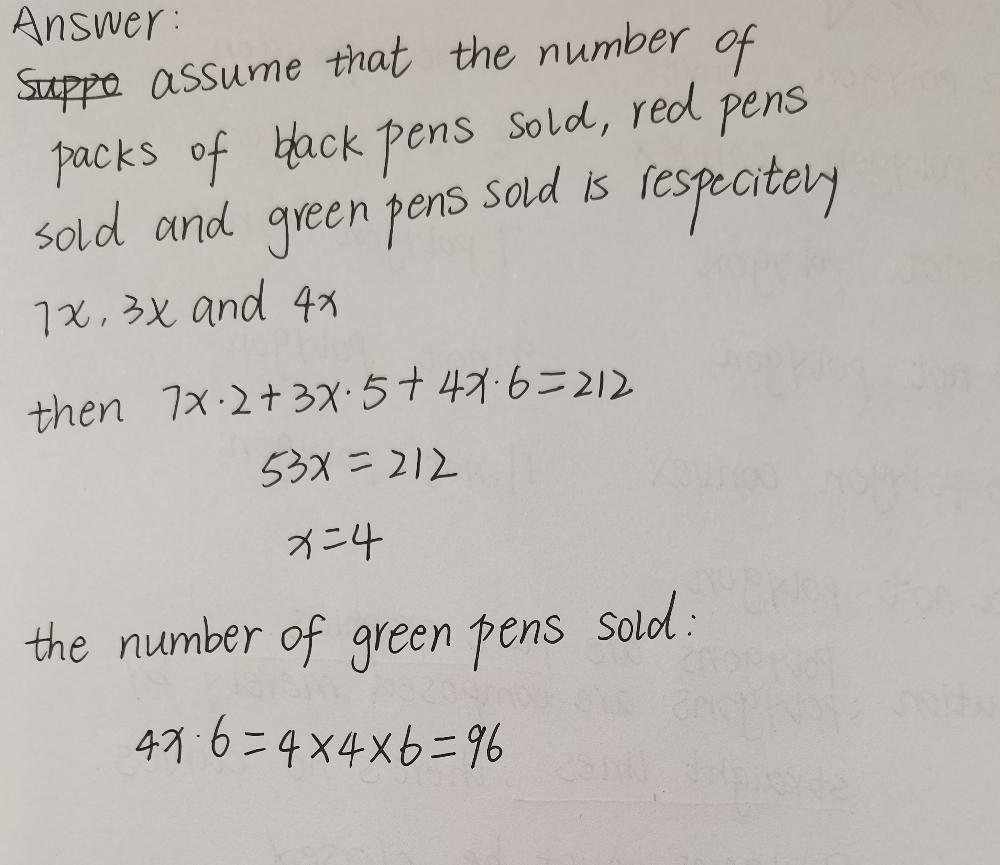 Answer:
Suppo assume that the number of
packs of black pens sold, red pens
sold and green pens sold is respecitevy
7x, 3x and 4x
then 7x·2+3x·5+4x·6=212
53x=212
x=4
the number of green pens sold:
4x·6=4×4×6=96